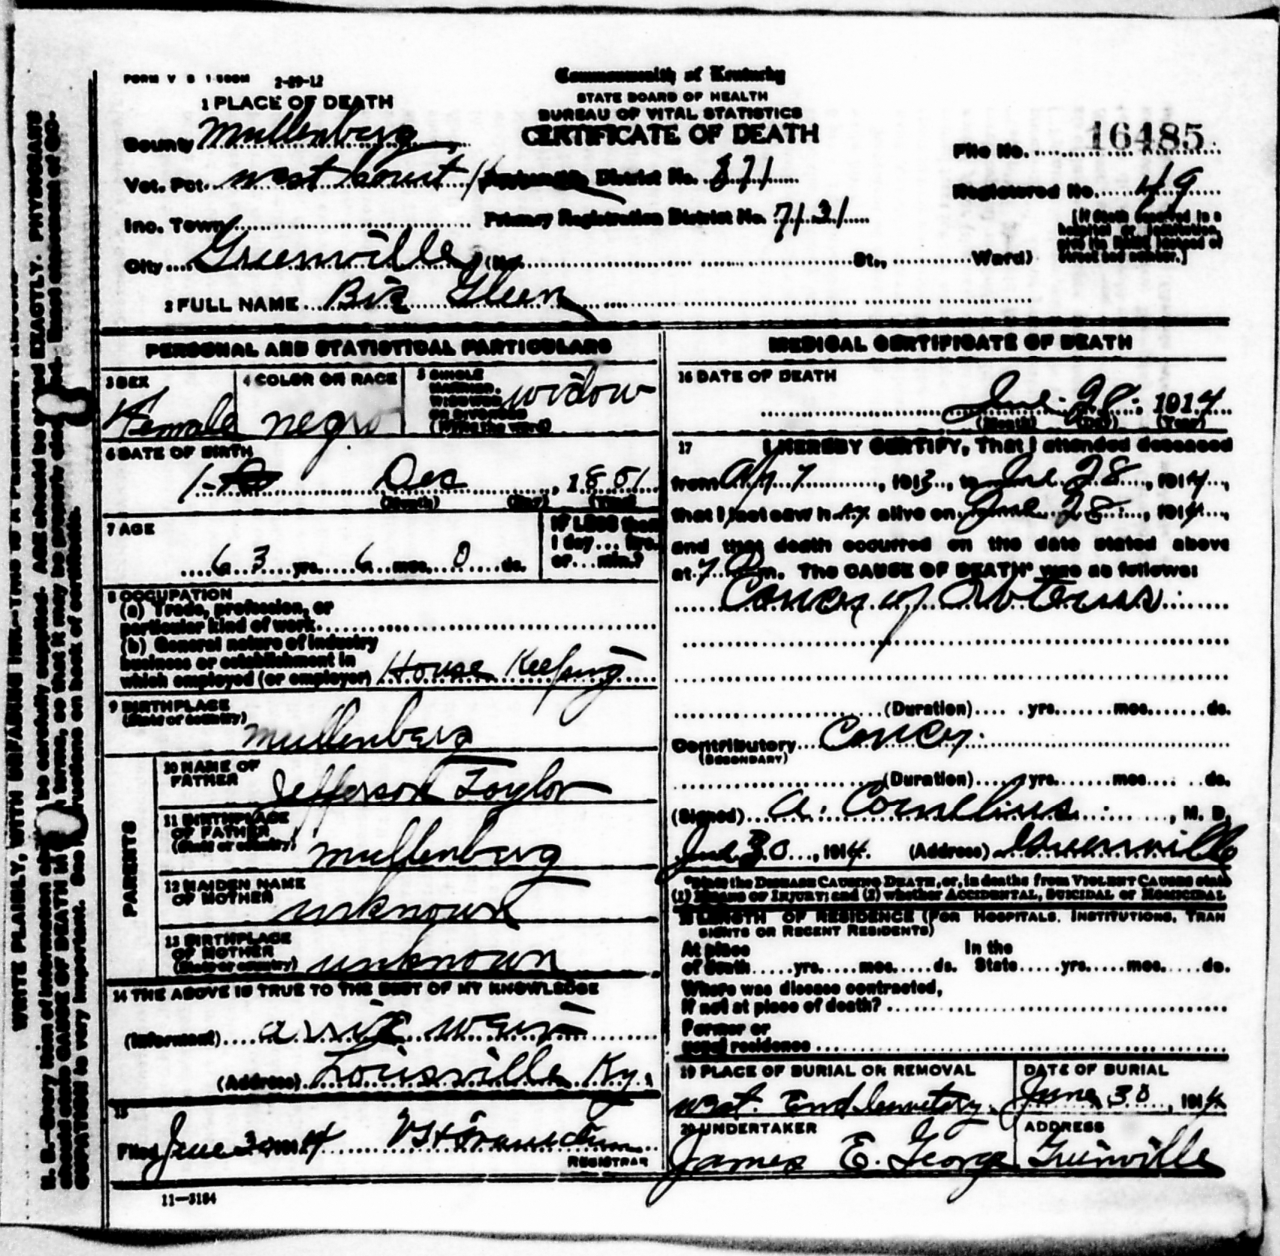 FORM V S 1-500M 2-29-12
Commonwealth of Kentucky
STATE BOARD OF HEALTH
BUREAU OF VITAL STATISTICS
CERTIFICATE OF DEATH
1 PLACE OF DEATH
County Muhlenberg
File No. 16485
Vot. Pct. West Court District No. 871
Registered No. 49
Inc. Town Primary Registration District No. 7131
[If death occurred in a hospital or institution, give its NAME instead of street and number.]
City Greenville (No. St., Ward)
2 FULL NAME Glenn
PERSONAL AND STATISTICAL PARTICULARS
3 SEX Female
4 COLOR OR RACE negro
5 SINGLE MARRIED, WIDOWED OR DIVORCED (Write the word) widow
6 DATE OF BIRTH
1 Dec , 1851
(Month) (Day) (Year)
7 AGE
63 yrs. 6 mos. 0 ds.
IF LESS than 1 day ... hrs. or ... min.?
8 OCCUPATION
(a) Trade, profession, or
particular kind of work
(b) General nature of industry
business or establishment in
which employed (or employer) House Keeping
9 BIRTHPLACE
(State or country)
Mullenberg
PARENTS
10 NAME OF FATHER Jefferson Taylor
11 BIRTHPLACE OF FATHER (State or country) Mullenberg
12 MAIDEN NAME OF MOTHER unknown
13 BIRTHPLACE OF MOTHER (State or country) unknown
14 THE ABOVE IS TRUE TO THE BEST OF MY KNOWLEDGE
(Informant) Weir
(Address) Louisville Ky.
15
Filed June 30 1914
REGISTRAR
11—3184
MEDICAL CERTIFICATE OF DEATH
16 DATE OF DEATH
June 28, 1914
(Month) (Day) (Year)
17 I HEREBY CERTIFY, That I attended deceased
from Apr 7, 1913, to June 28, 1914,
that I last saw her alive on June 28, 1914,
and that death occurred on the date stated above
at 7 m. The CAUSE OF DEATH* was as follows:
Cancer of Uterus
(Duration) yrs. mos. ds.
Contributory Cancer
(SECONDARY)
(Duration) yrs. mos. ds.
(Signed) A. Cornelius, M. D.
June 30, 1914. (Address) Greenville
*State the DISEASE CAUSING DEATH, or, in deaths from VIOLENT CAUSES state
(1) MEANS OF INJURY; and (2) whether ACCIDENTAL, SUICIDAL OR HOMICIDAL
18 LENGTH OF RESIDENCE (FOR HOSPITALS, INSTITUTIONS, TRAN
SIENTS OR RECENT RESIDENTS)
At place of death yrs. mos. ds. In the State yrs. mos. ds.
Where was disease contracted,
if not at place of death?
Former or
usual residence
19 PLACE OF BURIAL OR REMOVAL
West End Cemetery
DATE OF BURIAL
June 30, 1914
20 UNDERTAKER
James E. George
ADDRESS
Greenville